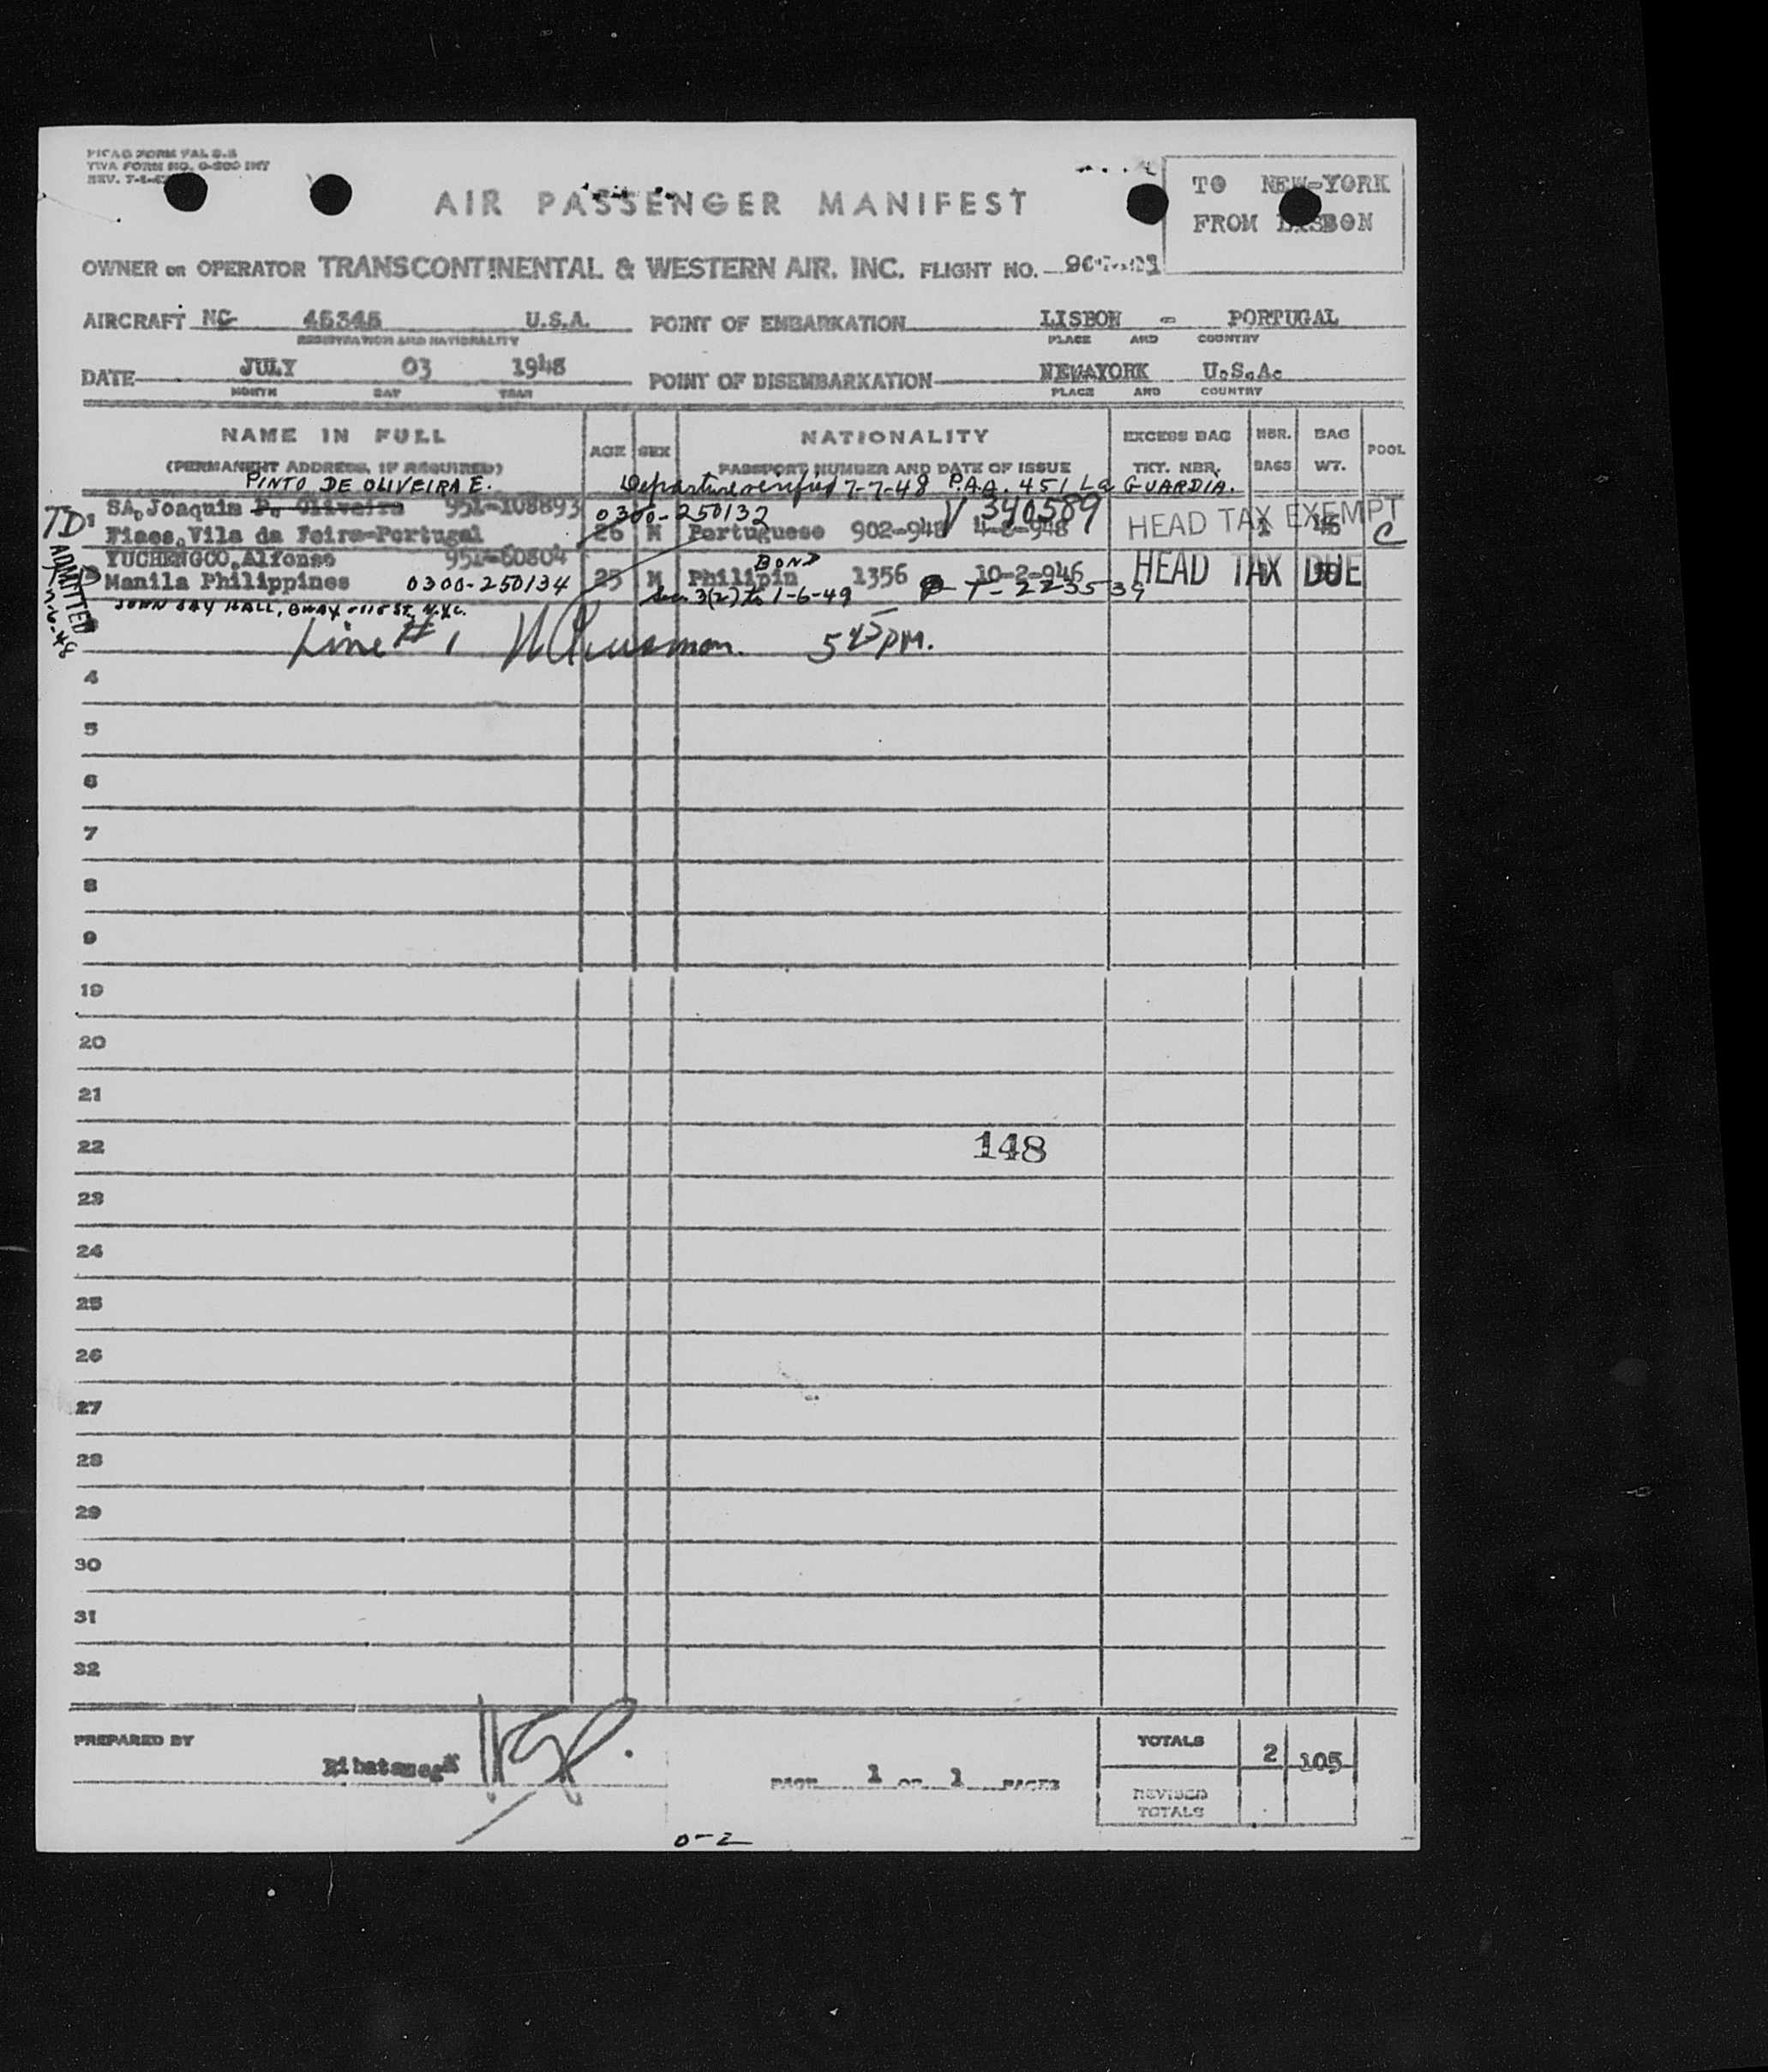 TWA FORM NO. O-200 INT
AIR PASSENGER MANIFEST
TO NEW-YORK
FROM LISBON
OWNER OR OPERATOR TRANSCONTINENTAL & WESTERN AIR, INC. FLIGHT NO.
AIRCRAFT NC 45346 U.S.A. POINT OF EMBARKATION LISBON - PORTUGAL
REGISTRATION AND NATIONALITY PLACE AND COUNTRY
DATE JULY 03 1948 POINT OF DISEMBARKATION NEWAYORK U.S.A.
MONTH DAY YEAR PLACE AND COUNTRY
NAME IN FULL AGE SEX NATIONALITY EXCESS BAG NBR. BAG POOL
(PERMANENT ADDRESS, IF REQUIRED) PASSPORT NUMBER AND DATE OF ISSUE TKT. NBR. BAGS WT.
PINTO DE OLIVEIRA E. Departure verified 7-7-48 P.A.A. 451 La GUARDIA.
TD 1 SA, Joaquim P. Oliveira 951-108893 0300-250132 V 340589
Fiaes, Vila da Feira-Portugal 26 M Portuguese 902-948 4-8-948 HEAD TAX EXEMPT 1 C
YUCHENGCO, Alfonso 951-60804 BOND
Manila Philippines 0300-250134 25 M Philipin 1356 10-2-946 HEAD TAX DUE
ADMITTED JOHN JAY HALL, BWAY-115 ST, N.Y.C. Sec. 3(2) to 1-6-49 T-223539
7-6-48
Line # 1 5 45 PM.
4
5
6
7
8
9
19
20
21
22 148
23
24
25
26
27
28
29
30
31
32
PREPARED BY
TOTALS 2 105
PAGE 1 OF 1 PAGES
REVISED
TOTALS
0-2